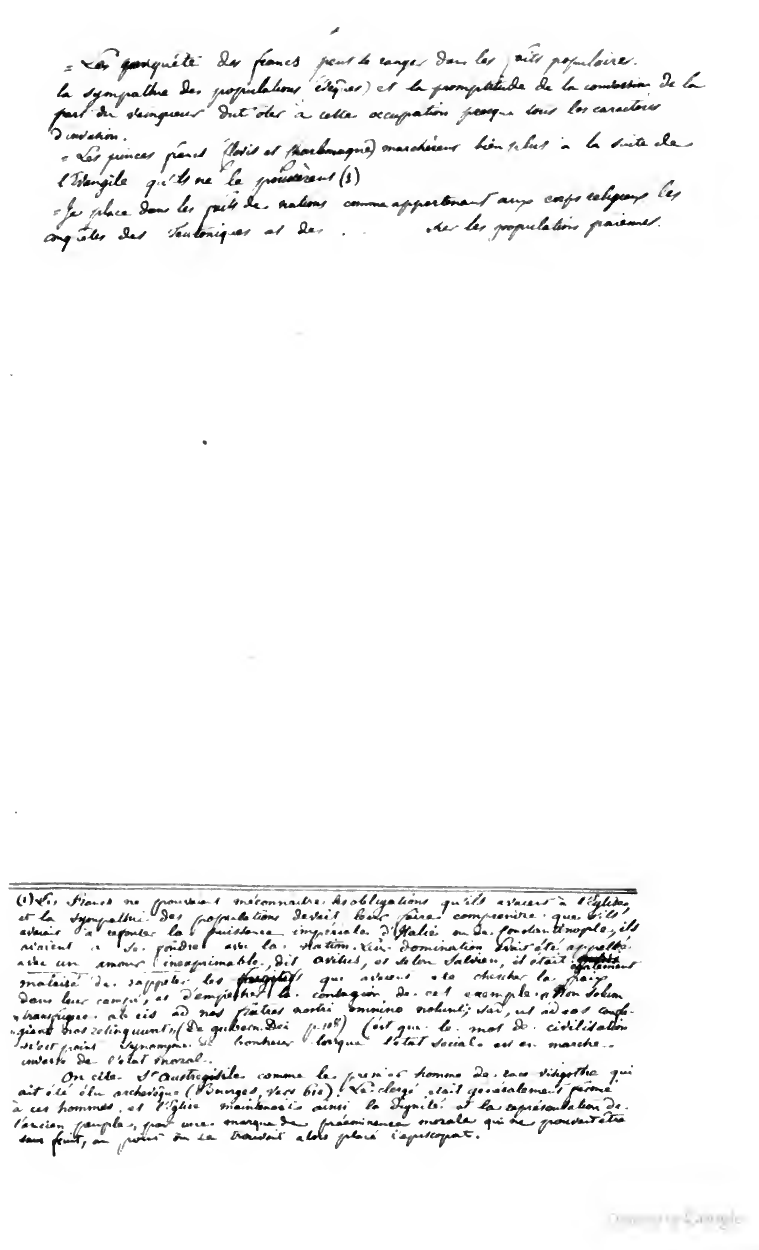 = La conquête des francs peut se ranger dans les faits populaires.
la sympathie des populations (évêques) et la promptitude de la conversion de la
part du vainqueur dut ôter à cette occupation presque tous les caractères
d'invasion.
= Les princes francs (Clovis et Charlemagne) marchèrent bien plus à la suite de
l'Evangile qu'ils ne le poussèrent (1)
= Je place dans les faits des nations comme appartenant aux corps religieux les
conquêtes des Teutoniques et des . . . les populations païennes.
(1) Les Francs ne pouvaient méconnaître les obligations qu'ils avaient à l'église,
et la sympathie des populations devait leur faire comprendre que s'ils
avaient à redouter la puissance impériale d'Italie ou de Constantinople, ils
avaient à se fondre avec la nation. Leur domination était appelée
avec un amour inexprimable, dit Avitus, et selon Salvien, il était également
malaisé de rappeler les fugitifs qui avaient été chercher la paix
dans leur camp, et d'empêcher la contagion de cet exemple. « Non solum
» transfugere ab eis ad nos fratres nostri omnino nolunt, sed, ut ad eos confu-
» giant nos relinquunt » (De gubern. Dei p. 108) C'est que le mot de civilisation
n'est point synonyme de bonheur lorsque l'état social est en marche
inverse de l'état moral.
On cite St Austregisile comme le premier homme de race visigothe qui
ait été élu archevêque (Bourges, vers 610). Le clergé était généralement fermé
à ces hommes, et l'Eglise maintenait ainsi la dignité et la représentation de
l'ancien peuple, par une marque de prééminence morale qui ne pouvait être
sans fruit, au point où se trouvait alors placé l'épiscopat.